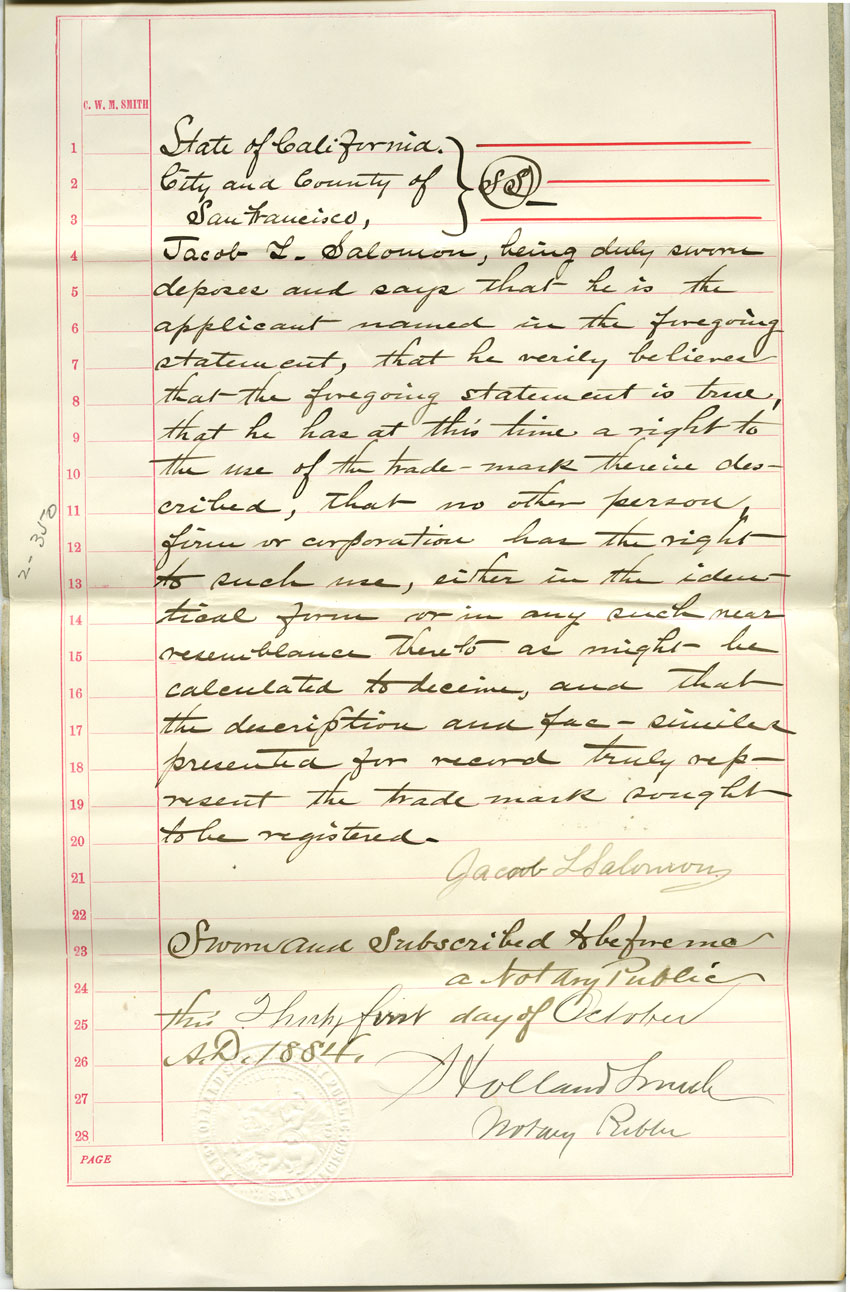 C. W. M. SMITH
1 State of California. }
2 City and County of } SS
3 San Francisco, }
4 Jacob L. Salomon, being duly sworn
5 deposes and says that he is the
6 applicant named in the foregoing
7 statement, that he verily believes
8 that the foregoing statement is true,
9 that he has at this time a right to
10 the use of the trade-mark therein des-
11 cribed, that no other person,
12 firm or corporation has the right
13 to such use, either in the iden-
14 tical form or in any such near
15 resemblance thereto as might be
16 calculated to deceive, and that
17 the description and fac-similes
18 presented for record truly rep-
19 resent the trade mark sought
20 to be registered.
21 Jacob L Salomon
22
23 Sworn and Subscribed to before me
24 a Notary Public
25 this Thirty first day of October
26 A.D. 1884.
27 Holland Smith
28 Notary Public
PAGE
2-350